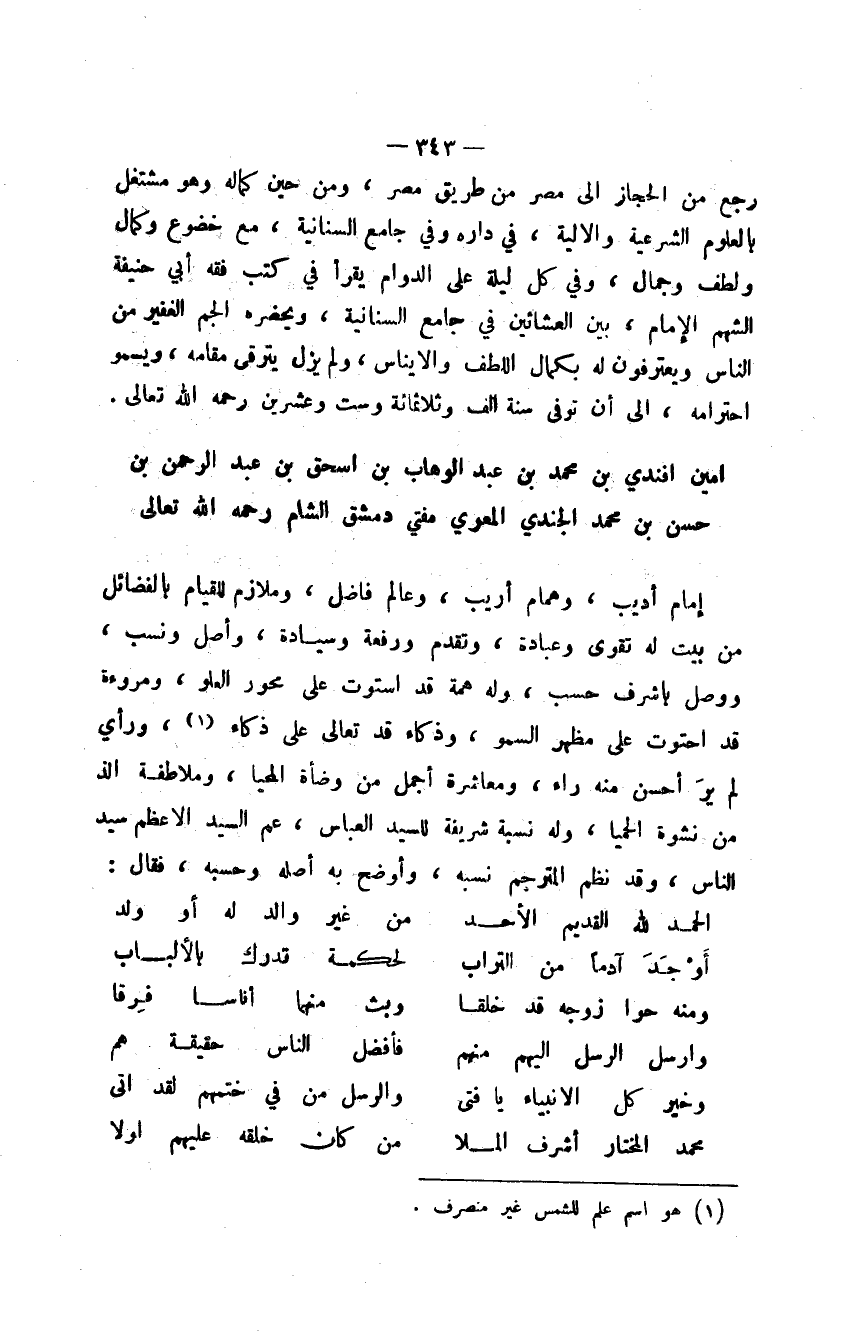 — ٣٤٣ —
رجع من الحجاز الى مصر من طريق مصر ، ومن حين كماله وهو مشتغل
بالعلوم الشرعية والالية ، في داره وفي جامع السنانية ، مع خضوع وكمال
ولطف وجمال ، وفي كل ليلة على الدوام يقرأ في كتب فقه أبي حنيفة
الشهم الإمام ، بين العشائين في جامع السنانية ، ويحضره الجم الغفير من
الناس ويعترفون له بكمال اللطف والايناس ، ولم يزل يترقى مقامه ، ويسمو
احترامه ، الى أن توفي سنة الف وثلاثمائة وست وعشرين رحمه الله تعالى .
امين افندي بن محمد بن عبد الوهاب بن اسحق بن عبد الرحمن بن
حسن بن محمد الجندي المعوي مفتي دمشق الشام رحمه الله تعالى
إمام أديب ، وهمام أريب ، وعالم فاضل ، وملازم للقيام بالفضائل
من بيت له تقوى وعبادة ، وتقدم ورفعة وسيادة ، وأصل ونسب ،
ووصل بأشرف حسب ، وله همة قد استوت على محور العلو ، ومروءة
قد احتوت على مظهر السمو ، وذكاء قد تعالى على ذكاء (١) ، ورأي
لم يرَ أحسن منه راء ، ومعاشرة أجمل من وضأة المحيا ، وملاطفة الذ
من نشوة الحميا ، وله نسبة شريفة للسيد العباس ، عم السيد الاعظم سيد
الناس ، وقد نظم المترجم نسبه ، وأوضح به أصله وحسبه ، فقال :
الحمد لله القديم الأحد من غير والد له أو ولد
أَوْجَدَ آدماً من التراب لحكمة تدرك بالألباب
ومنه حوا زوجه قد خلقا وبث منهما أناسا فِرقا
وارسل الرسل اليهم منهم فأفضل الناس حقيقة هم
وخير كل الانبياء يا فتى والرسل من في ختمهم لقد اتى
محمد المختار أشرف الملا من كان خلقه عليهم اولا
(١) هو اسم علم للشمس غير منصرف .